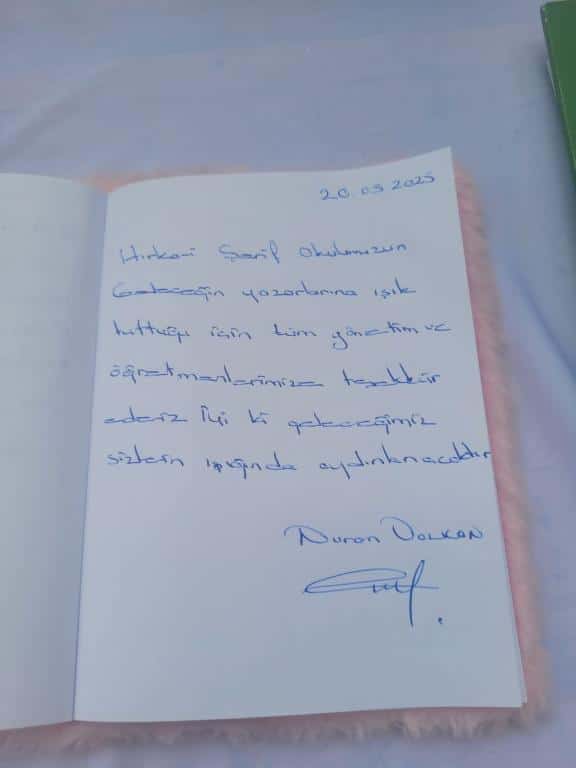 20.05.2025
Hırka-i Şerif Okulumuzun
Geleceğin yazarlarına ışık
tuttuğu için tüm yönetim ve
öğretmenlerimize teşekkür
ederiz İyi ki geleceğimiz
sizlerin ışığında aydınlanacaktır
Nuran VOLKAN